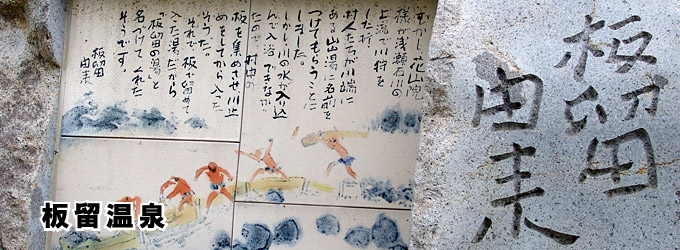 むかし花山院
様が浅瀬石川の
上流で川狩を
した折、
村人たちが川端に
ある出湯に名前を
つけてもらうことに
しました。
しかし川の水が入り込
んで入浴できなかっ
たので、村中の
板を集めさせ川止
めをしてから入った
そうだ。
それで、板で留めて
入た湯だから
「板留の湯」と
名づけてくれた
そうです。
板留
由来
板留
由来
板留温泉